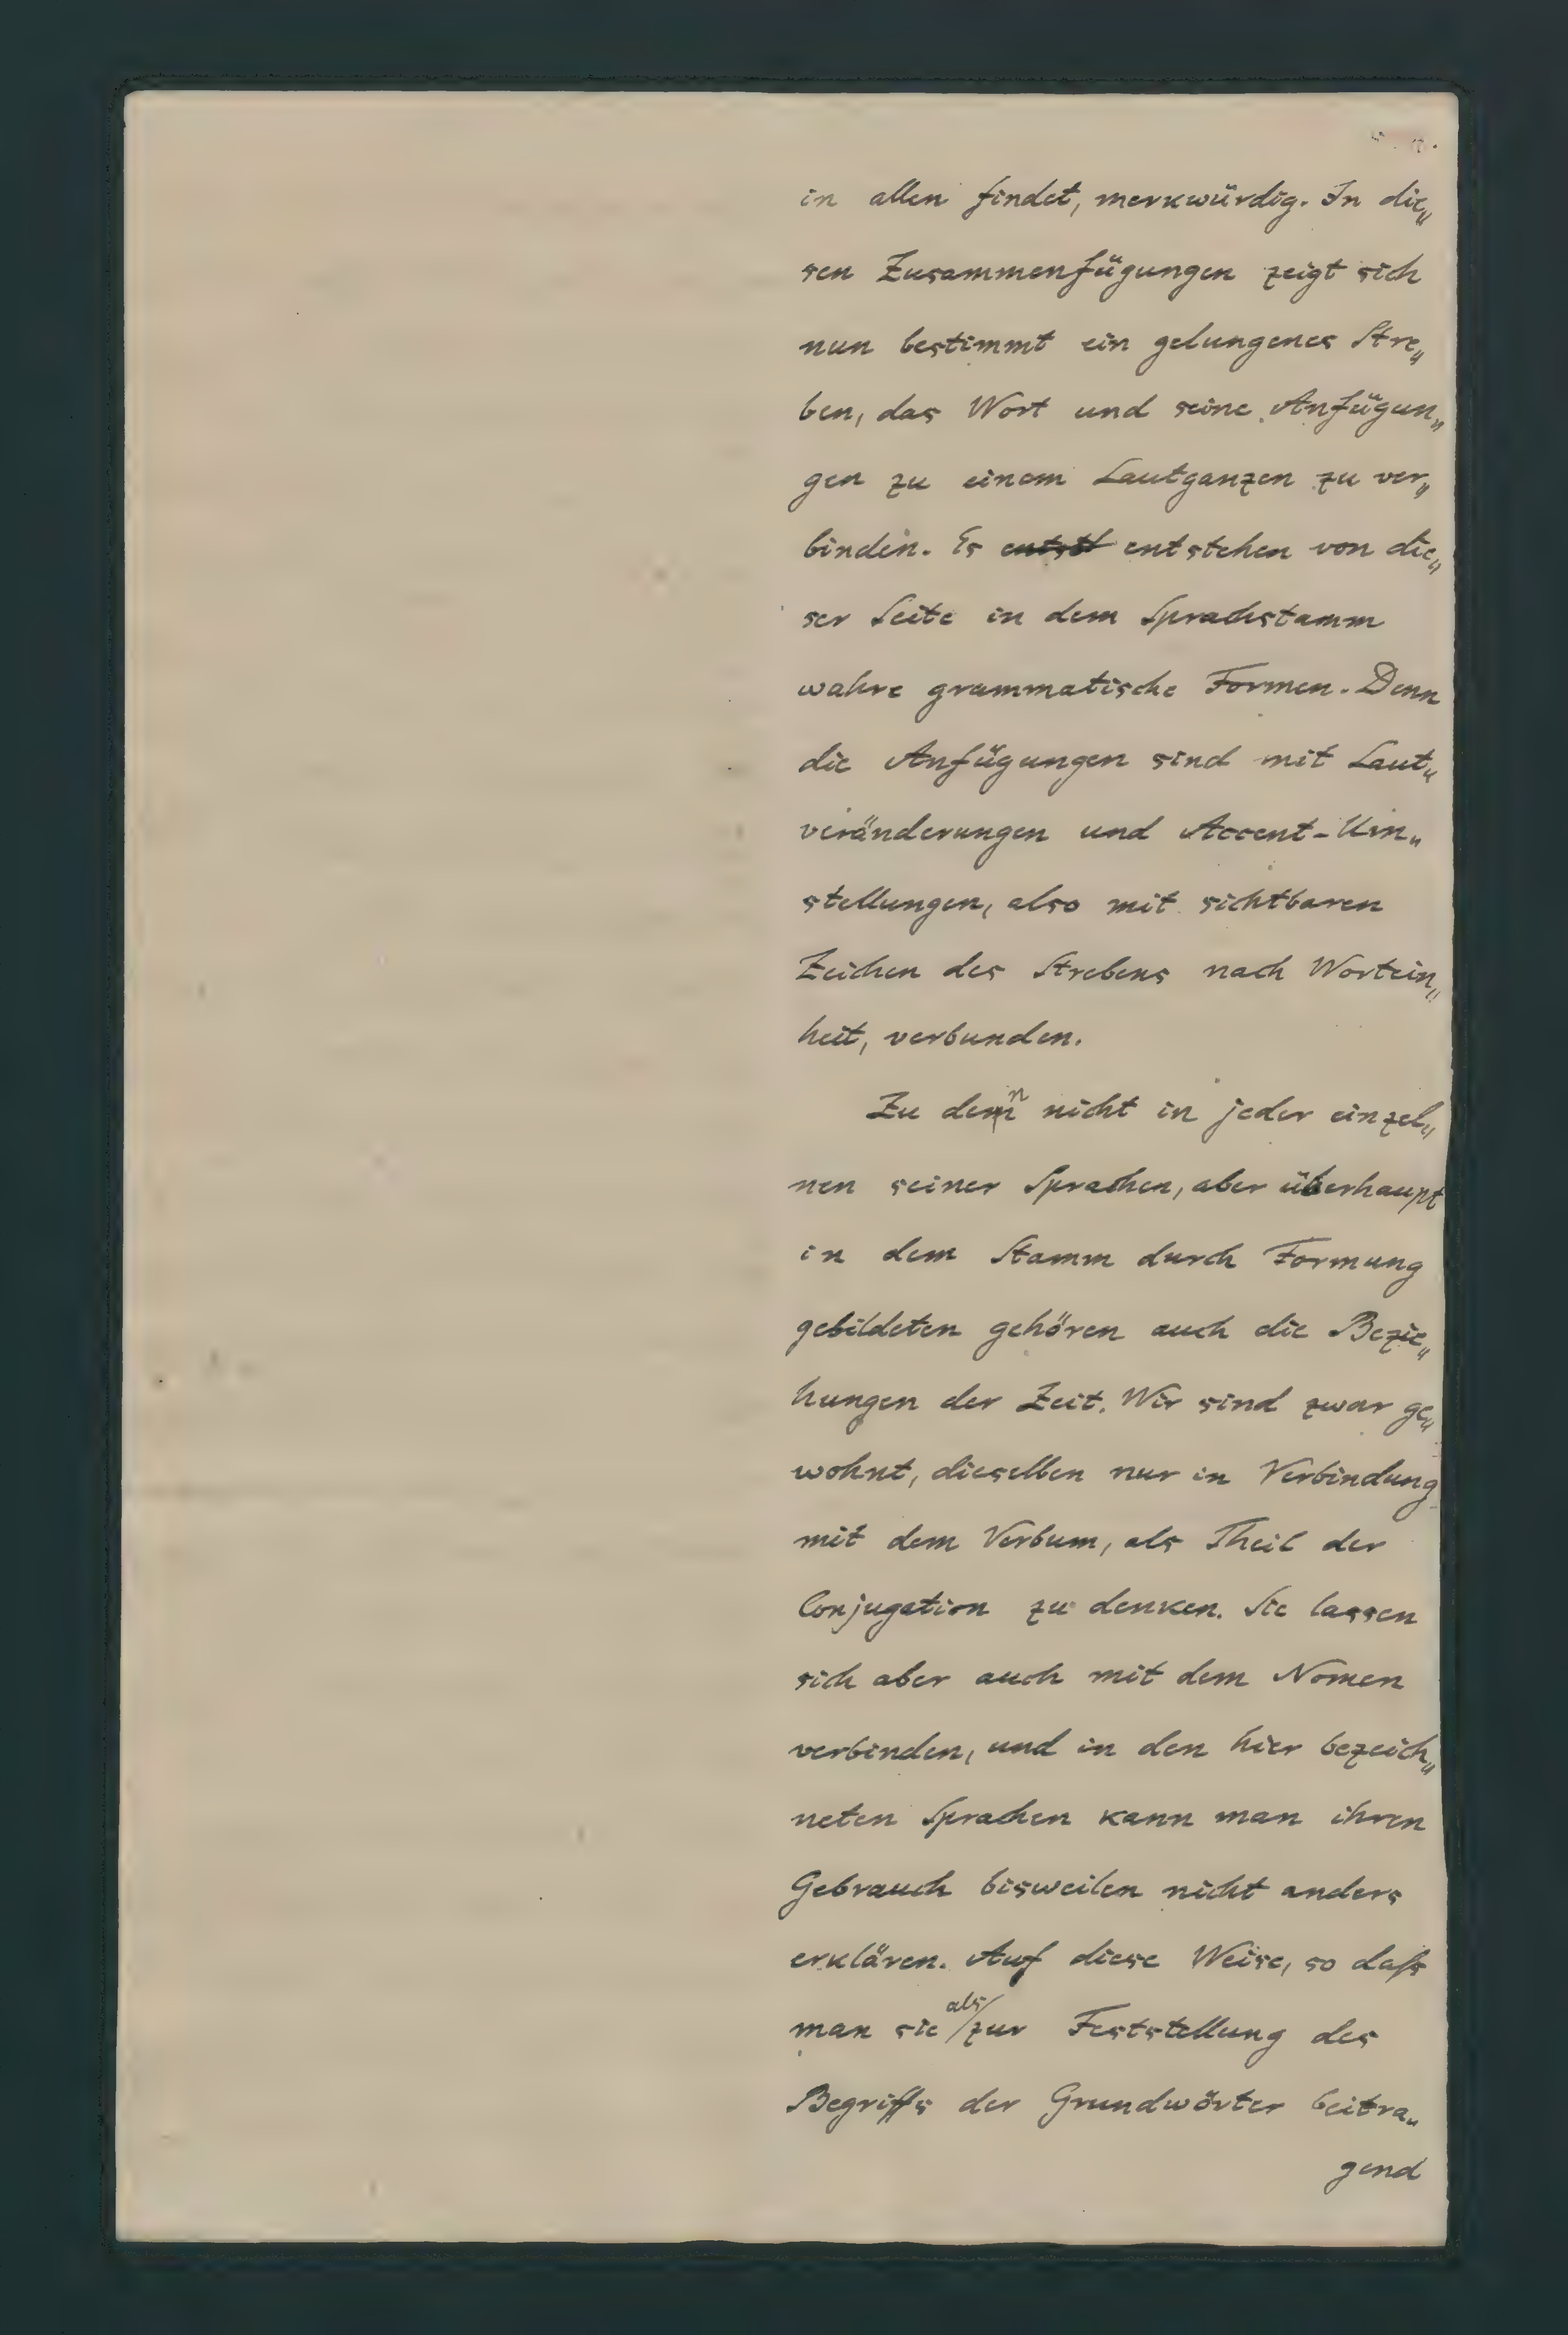 in allen findet, merkwürdig. In die„
sen Zusammenfügungen zeigt sich
nun bestimmt ein gelungenes Stre„
ben, das Wort und seine Anfügun„
gen zu einem Lautganzen zu ver„
binden. Es entst entstehen von die„
ser Seite in dem Sprachstamm
wahre grammatische Formen. Denn
die Anfügungen sind mit Laut„
veränderungen und Accent-Um„
stellungen, also mit sichtbaren
Zeichen des Strebens nach Wortein„
heit, verbunden.
Zu dem n nicht in jeder einzel„
nen seiner Sprachen, aber überhaupt
in dem Stamm durch Formung
gebildeten gehören auch die Bezie„
hungen der Zeit. Wir sind zwar ge„
wohnt, dieselben nur in Verbindung
mit dem Verbum, als Theil der
Conjugation zu denken. Sie lassen
sich aber auch mit dem Nomen
verbinden, und in den hier bezeich„
neten Sprachen kann man ihren
Gebrauch bisweilen nicht anders
erklären. Auf diese Weise, so daß
man sie als zur Feststellung des
Begriffs der Grundwörter beitra„
gend